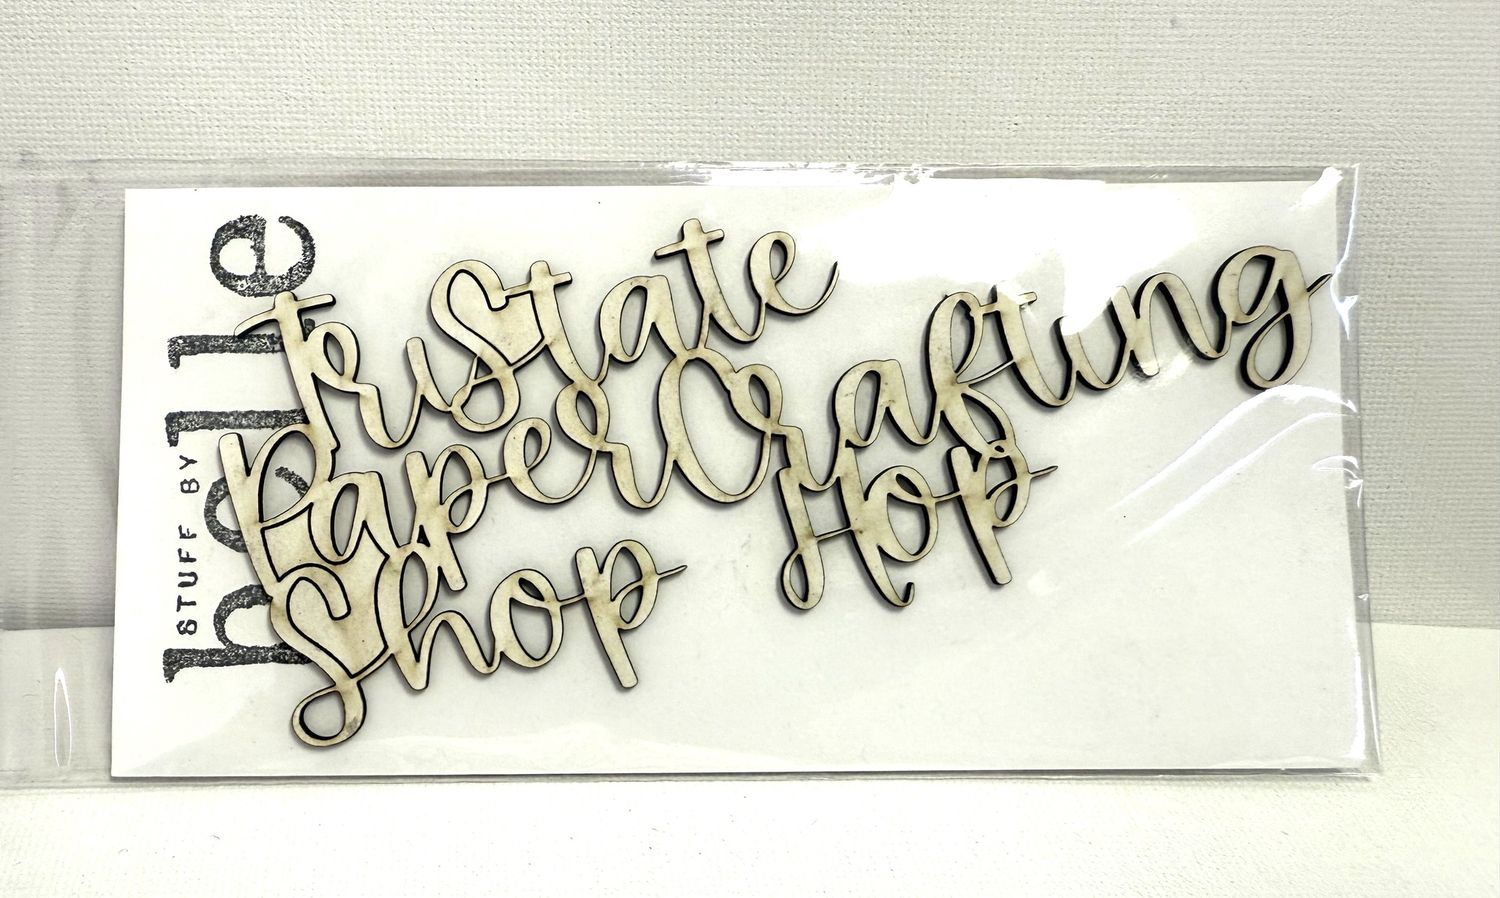 TriState
PaperCrafting
Shop Hop
STUFF BY
helle